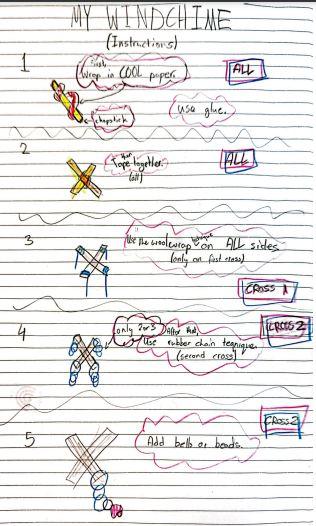 MY WINDCHIME
(Instructions)
1
First,
wrap in COOL paper.
ALL
chopstick
use glue.
2
then
Tape together.
(all)
ALL
3
Use the wool wrap technique on ALL sides
(only on first cross)
CROSS 1
4
only 2 or 3
After that,
Use rubber chain tequnique.
(second cross)
CROSS 2
5
Add bells or beads.
CROSS 2